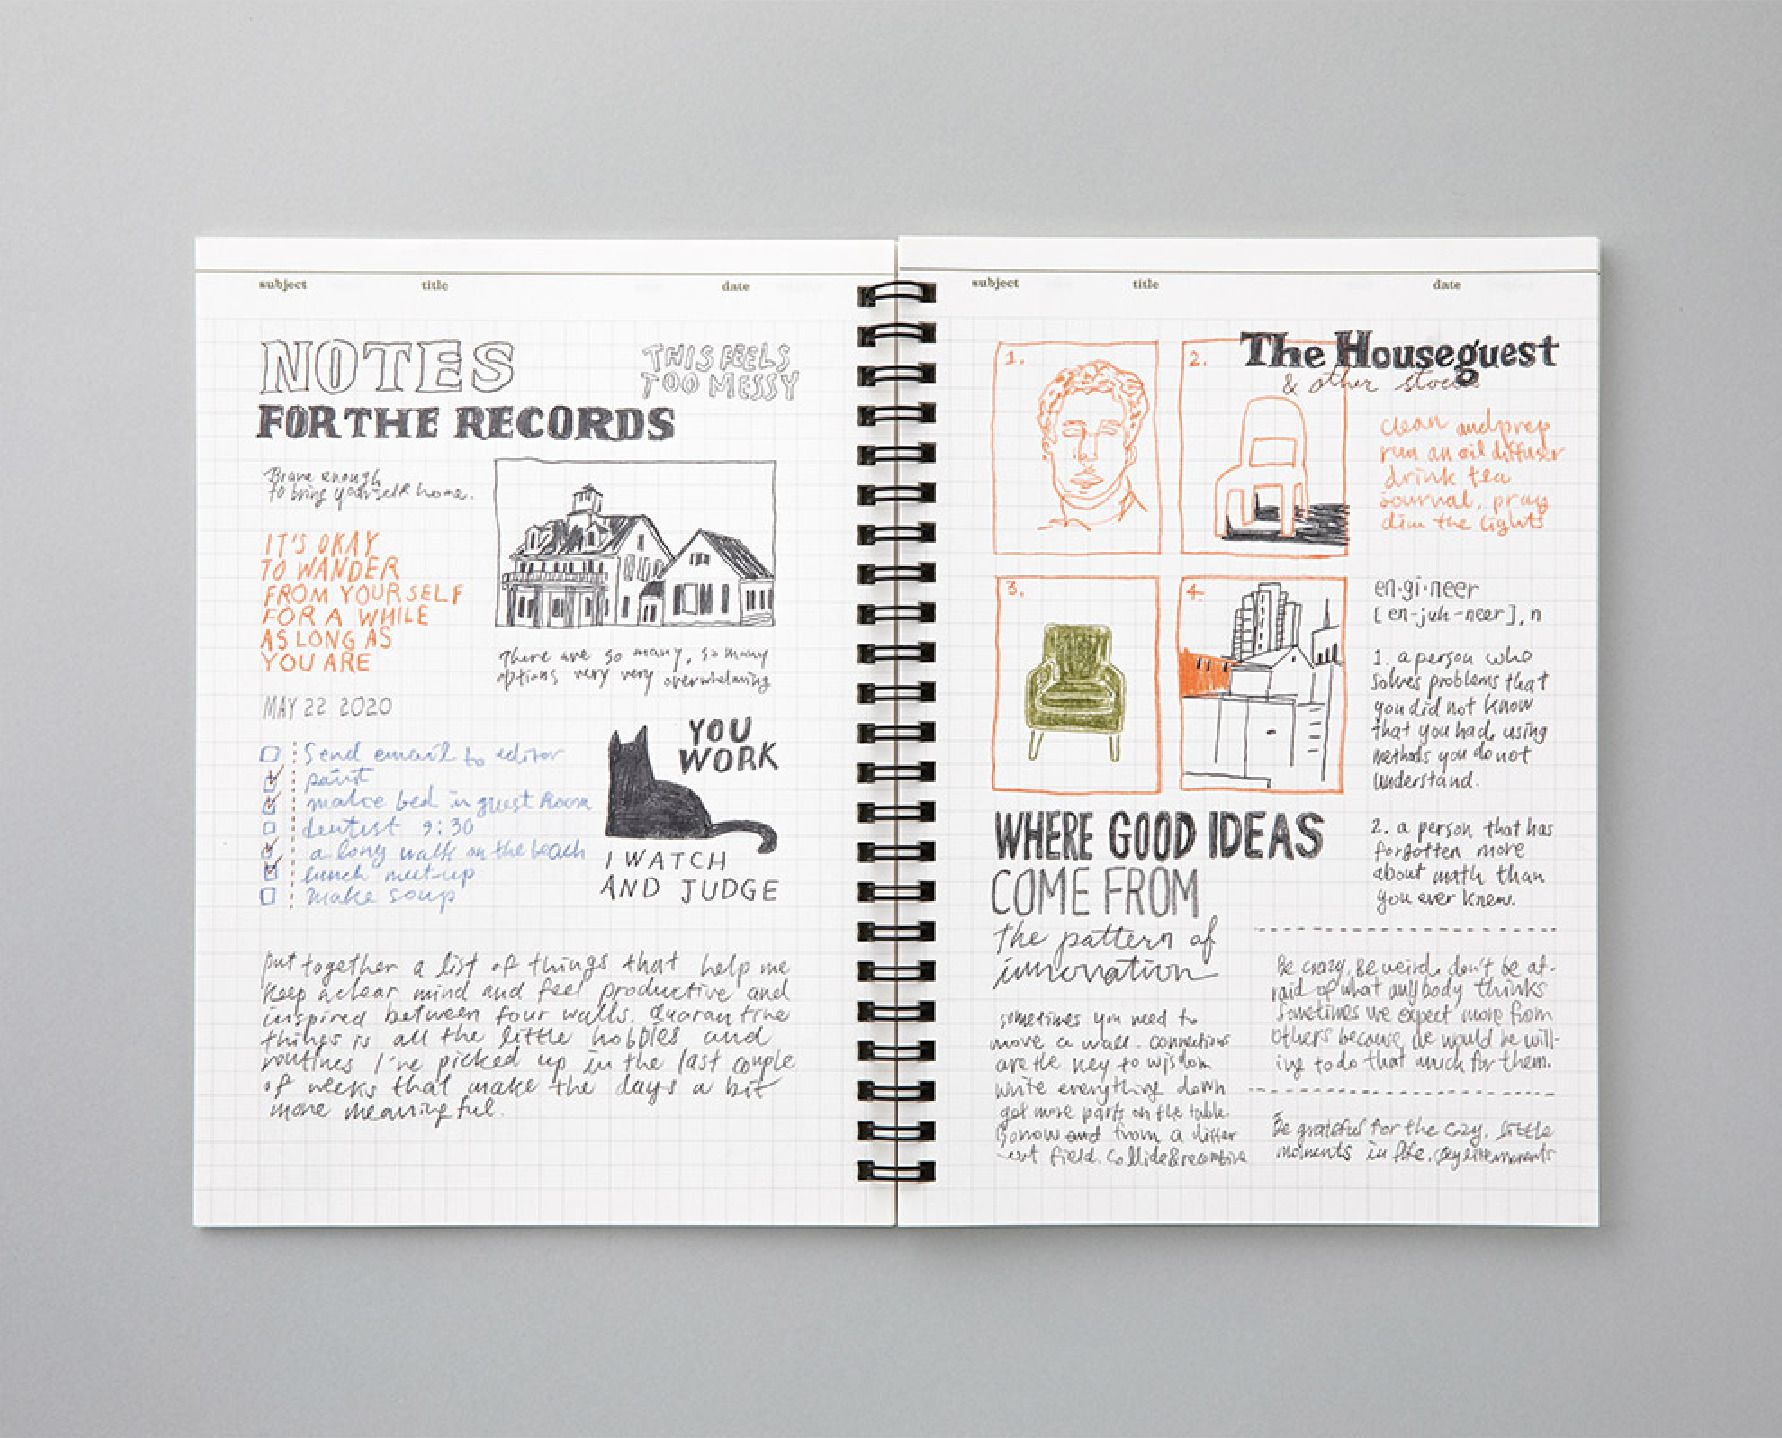 subject title date
NOTES
FOR THE RECORDS
THIS FEELS
TOO MESSY
Brave enough
to bring yourself home.
IT'S OKAY
TO WANDER
FROM YOURSELF
FOR A WHILE
AS LONG AS
YOU ARE
there are so many, so many
options very very overwhelming
MAY 22 2020
Send email to editor
paint
make bed in guest Room
dentist 9:30
a long walk on the beach
lunch meet-up
make soup
YOU
WORK
I WATCH
AND JUDGE
put together a list of things that help me
keep a clear mind and feel productive and
inspired between four walls. Quarantine
things is all the little hobbies and
routines I've picked up in the last couple
of weeks that make the days a bit
more meaningful.
subject title date
1.
2.
The Houseguest
& other stories
clean and prep
run an oil diffuser
drink tea
journal, pray
dim the lights
3.
4.
en·gi·neer
[en-juh-neer], n
1. a person who
solves problems that
you did not know
that you had, using
methods you do not
understand.
2. a person that has
forgotten more
about math than
you ever knew.
WHERE GOOD IDEAS
COME FROM
the pattern of
innovation
sometimes you need to
move a wall. connections
are the key to wisdom
write everything down
get more parts on the table
Borrow and from a differ
-ent field. Collide & recombine
Be crazy, Be weird, don't be af-
raid of what anybody thinks
Sometimes we expect more from
others because we would be will-
ing to do that much for them.
Be grateful for the cozy, little
moments in life.